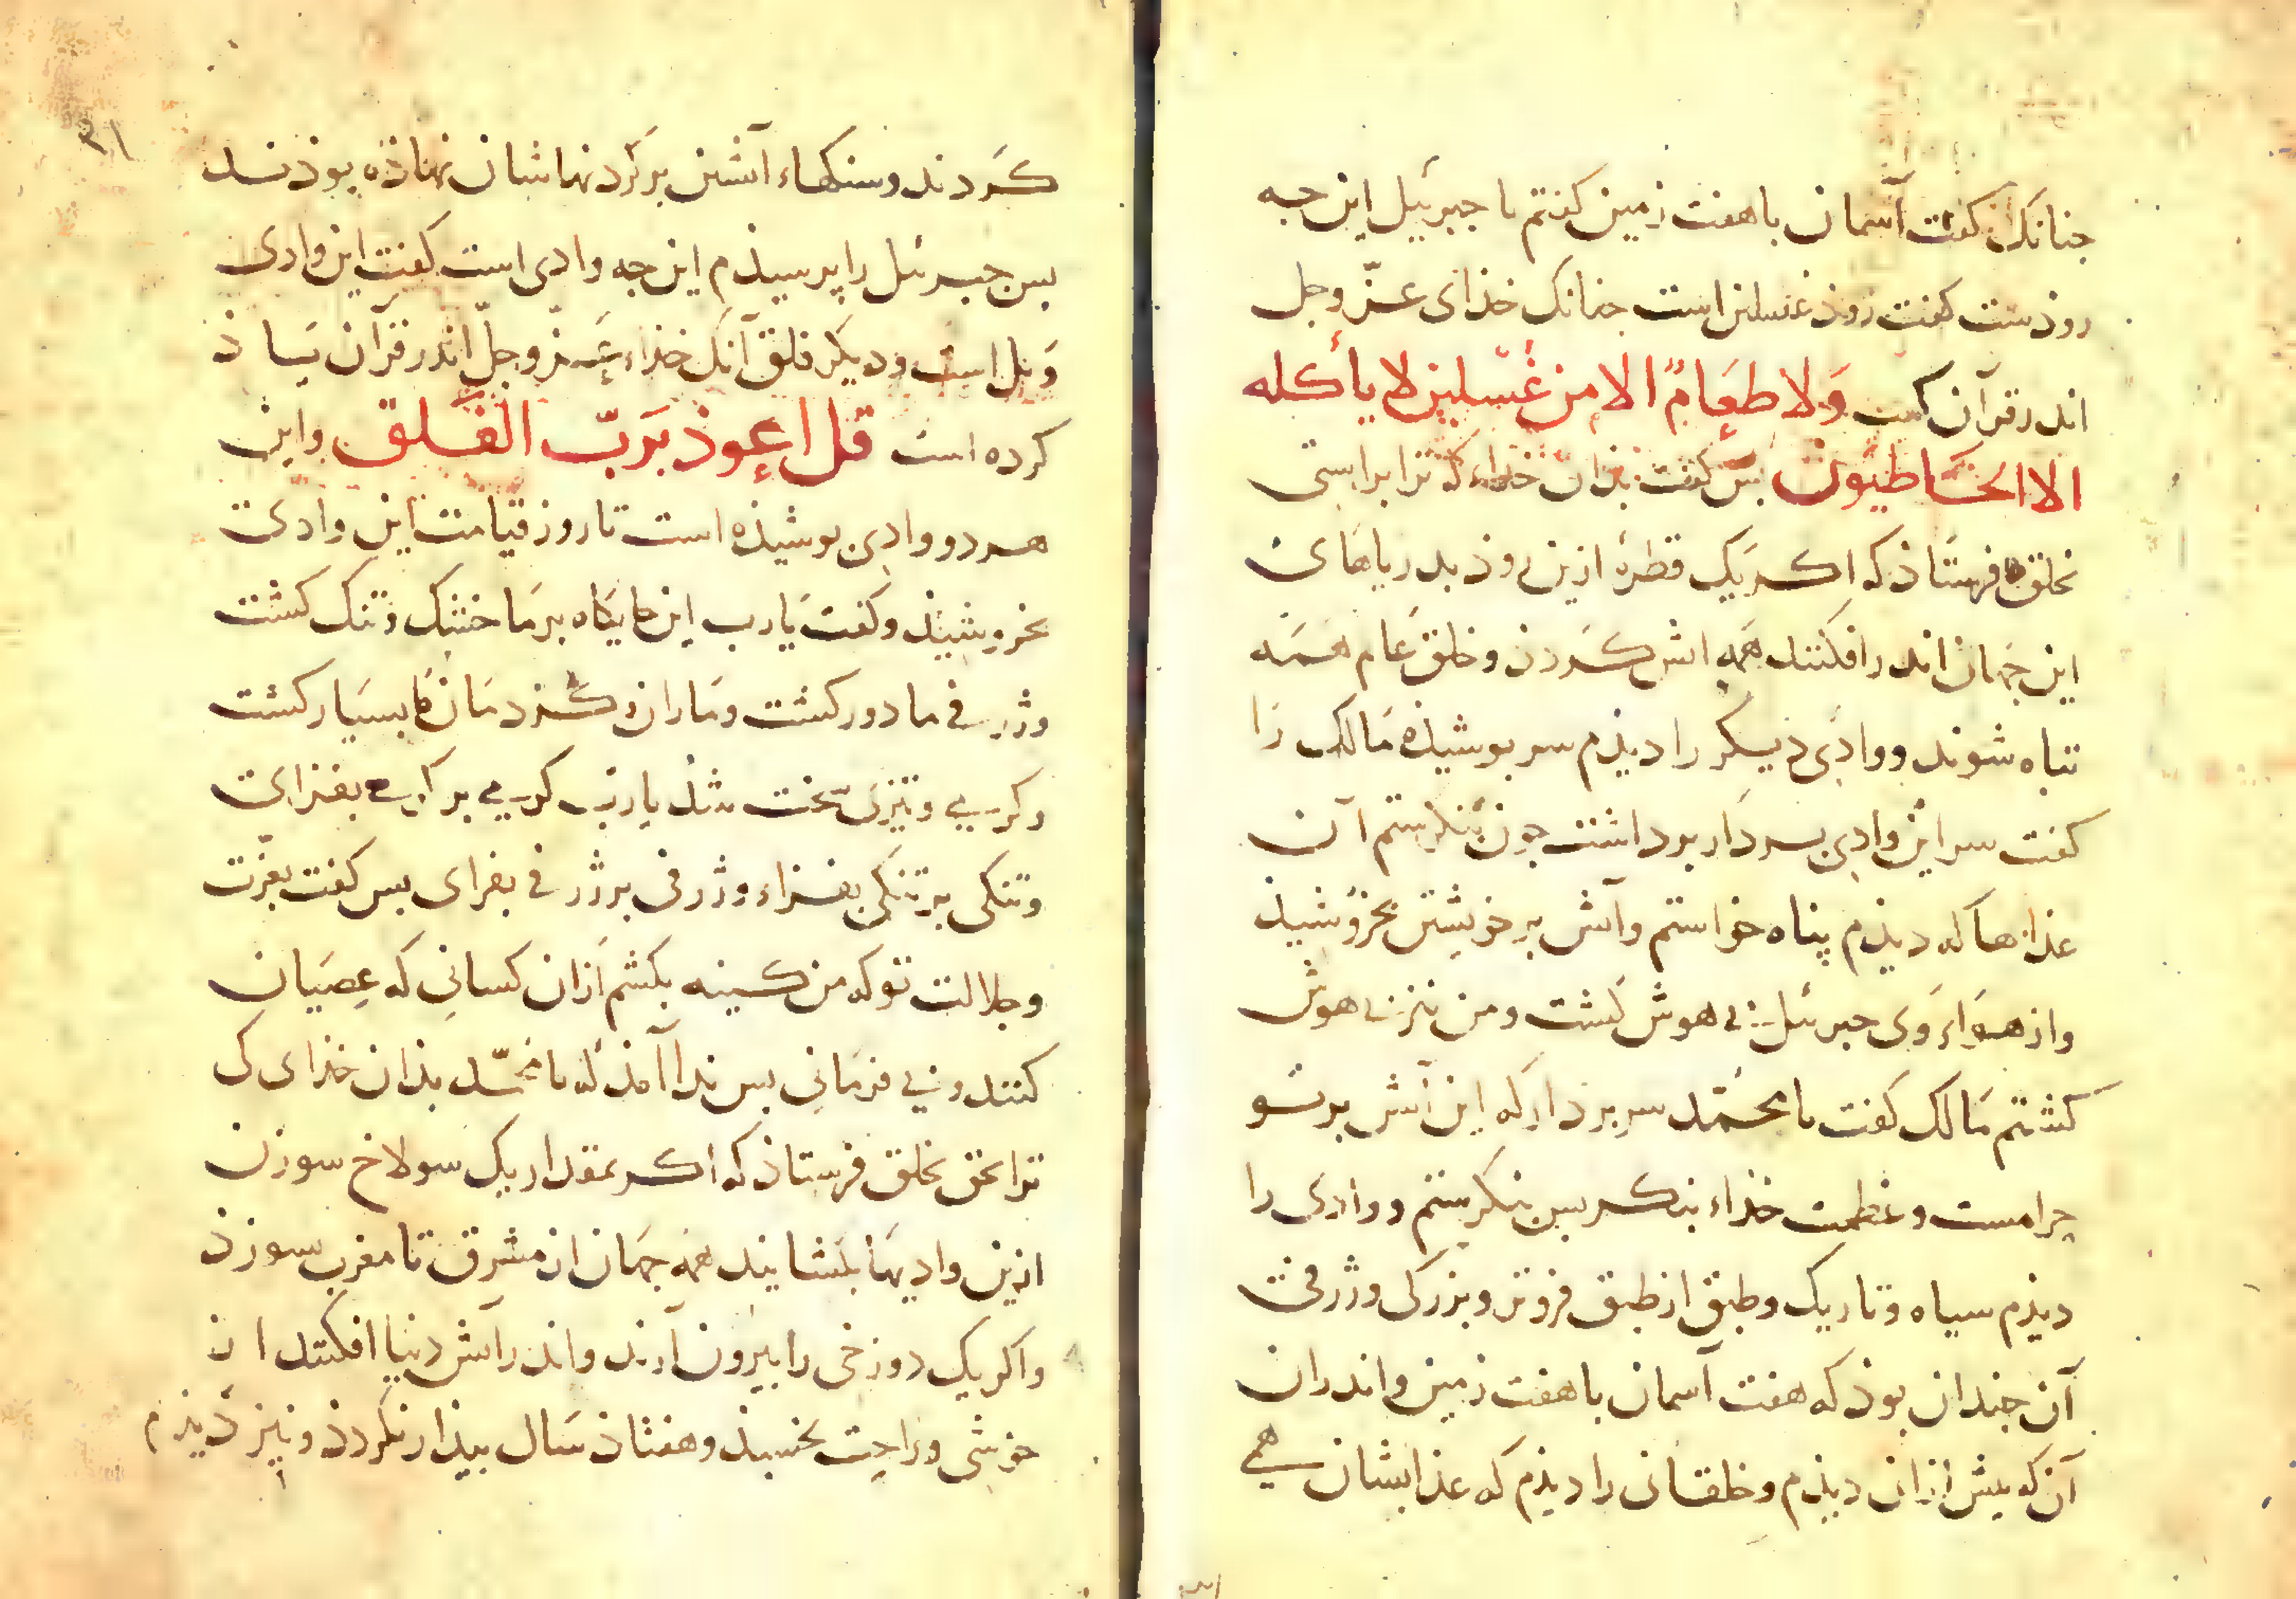 جنانکز کفت آسمان با هفت زمین کفتم یا جبرئیل این جه
روذست کفت روذ غسلین است جنانک خذای عزّ وجل
اندر قرآن کفت وَلا طعَامٌ الا من غسلین لا یأکله
الا الخاطیون بس کفت بذان خذاء که ترا براستی
بخلق فرستاذ که اکر یک قطرهٔ ازین روذ بدریاهای
این جهان اندر افکنند همه اتش کردذ و خلق عام همه
تباه شوند و وادی دیکر را دیذم سر بوشیذه مالک را
کفت سر این وادی بردار برداشت جون بنکرستم آن
عذابها که دیذم پناه خواستم وآتش بر خویشتن بخروشیذ
واز هواء وی جبرئیل بی هوش کشت و من نیز بی هوش
کشتم مالک کفت یا محمّد سر بردار که این آتش بر تو
حرامست وعظمت خذاء بنکر بس بنکرستم و وادی را
دیذم سیاه وتاریک وطبق از طبق فروتر وبزرکی وژرفی
آن جندان بوذ که هفت آسمان با هفت زمین واندران
آن که بیش ازان دیذم وخلقانی را دیذم که عذابشان همی
۳۱
کردند وسنکهاء آتشین بر کردنهاشان نهاذه بوذند
بس جبرئل را پرسیذم این جه وادی است کفت این وادی
وَیل است ودیکر فلق آنک خذاء عَزّ وجلّ اندر قرآن یَاذ
کرده است قل اعوذ بَربّ الفَلق واین
هر دو وادی بوشیذه است تا روز قیامت این وادی
بخروشیذ وکفت یَارب این جایکاه بر مَا خشک وتنک کشت
وژرفی ما دور کشت ومَاران وکزدمان ما بسیَار کشت
وکرمی وتیزی سخت شذ یا رب کرمی بر کرمی بفزای
وتنکی بر تنکی بفزاء وژرفی بر ژرفی بفزای بس کفت بعزّت
وجلالت تو که من کینه بکشم اَزان کسانی که عِصیَان
کنند وبی فرمَانی بس ندا آمذ که یا محمّد بذان خذای کی
ترا بحق بخلق فرستاذ که اکر بمقدار یک سولاخ سوزن
ازین وادیهَا بکشایند همه جهَان از مشرق تا مغرب سوزذ
واکر یک دوزخی را بیرون آرند واندر آتش دنیا افکنند از
خوشی وراحت بخسبذ وهفتاذ سَال بیذار نکردذ ونیز دیذم